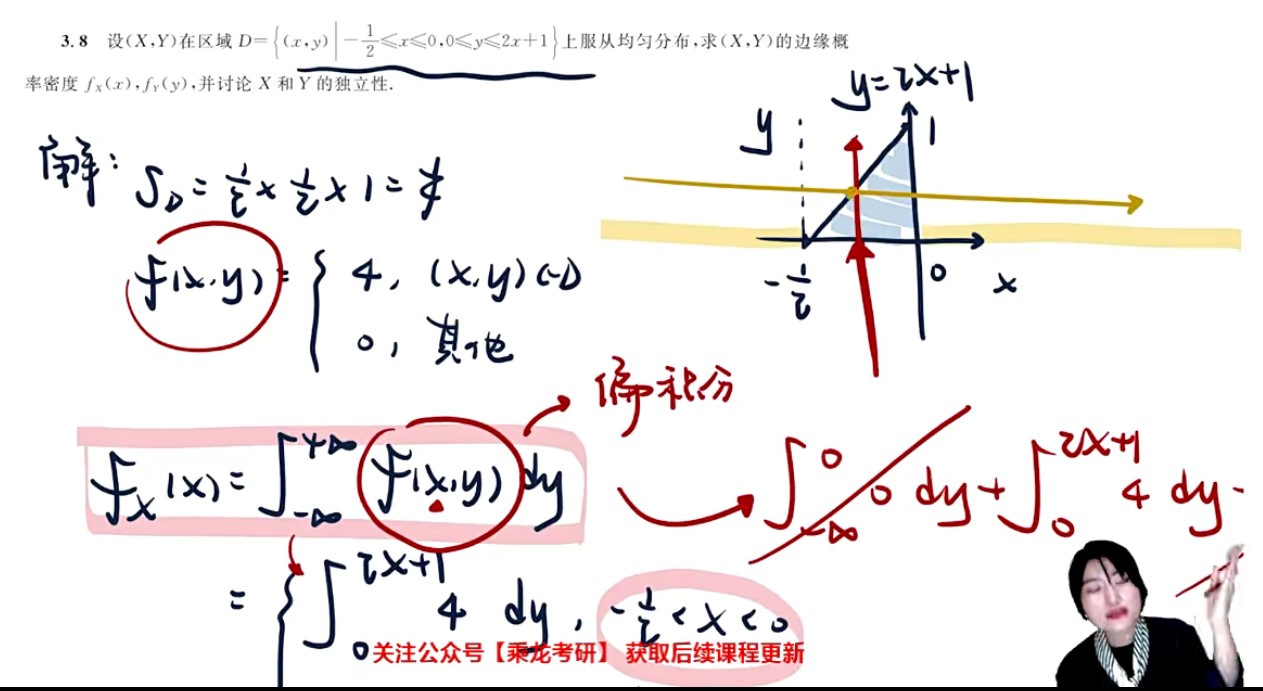 3.8 设(X,Y)在区域 D={(x,y)|-1/2≤x≤0,0≤y≤2x+1}上服从均匀分布,求(X,Y)的边缘概
率密度 f_X(x),f_Y(y),并讨论 X 和 Y 的独立性.
y=2x+1
y
1
解: S_D = 1/2 × 1/2 × 1 = 1/4
-1/2
0
x
f(x,y) = { 4, (x,y)∈D
0, 其他
偏积分
f_X(x) = ∫_{-∞}^{+∞} f(x,y) dy
∫_{-∞}^{0} 0 dy + ∫_{0}^{2x+1} 4 dy
= { ∫_{0}^{2x+1} 4 dy, -1/2 < x < 0
关注公众号【乘龙考研】 获取后续课程更新